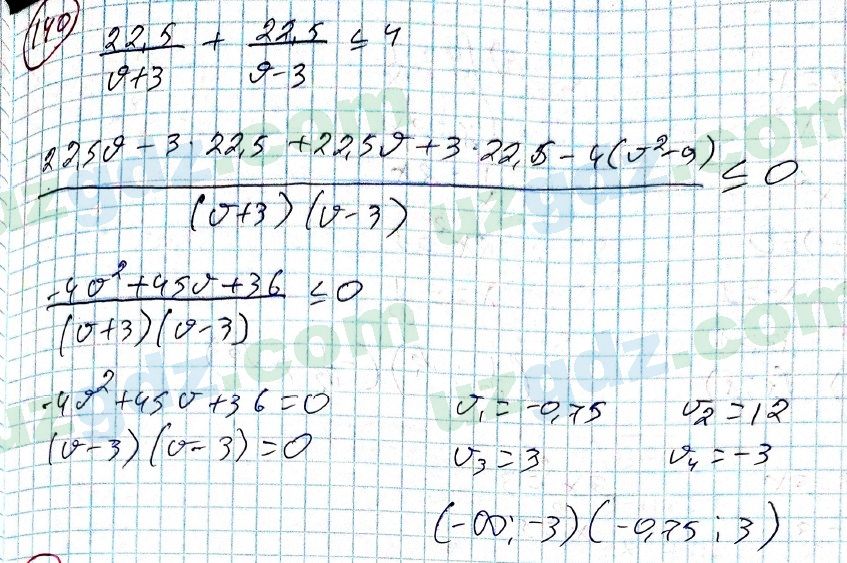 140
22,5/(v+3) + 22,5/(v-3) ≤ 4
(22,5v - 3·22,5 + 22,5v + 3·22,5 - 4(v²-9))/((v+3)(v-3)) ≤ 0
(-4v²+45v+36)/((v+3)(v-3)) ≤ 0
-4v²+45v+36=0 v₁=-0,75 v₂=12
(v-3)(v-3)=0 v₃=3 v₄=-3
(-∞; -3)(-0,75; 3)
uzgdz.com
uzgdz.com
uzgdz.com
uzgdz.com